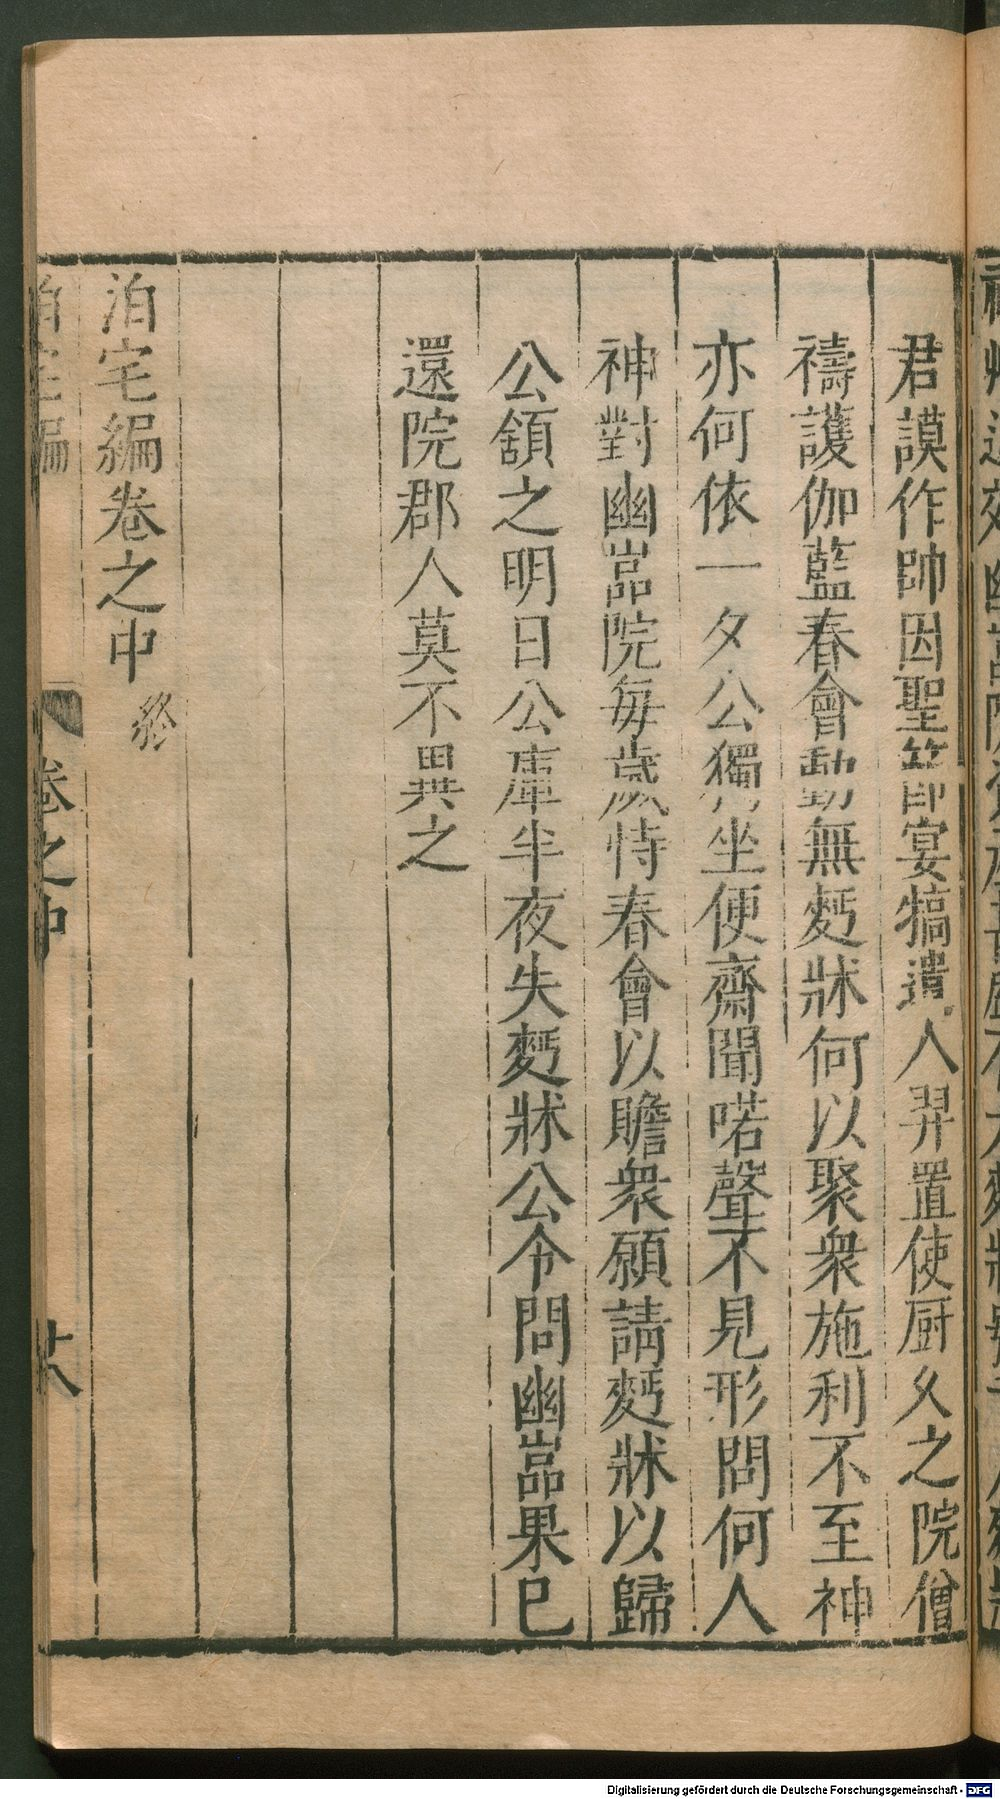 君謨作帥因聖節宴犒遣人舁置使厨久之院僧
禱護伽藍春會動無麫牀何以聚衆施利不至神
亦何依一夕公獨坐便齋聞喏聲不見形問何人
神對幽嵓院每歲恃春會以贍衆願請麫牀以歸
公頷之明日公庫半夜失麫牀公令問幽嵓果已
還院郡人莫不異之
泊宅編卷之中 終
泊宅編 卷之中 十六
Digitalisierung gefördert durch die Deutsche Forschungsgemeinschaft - DFG